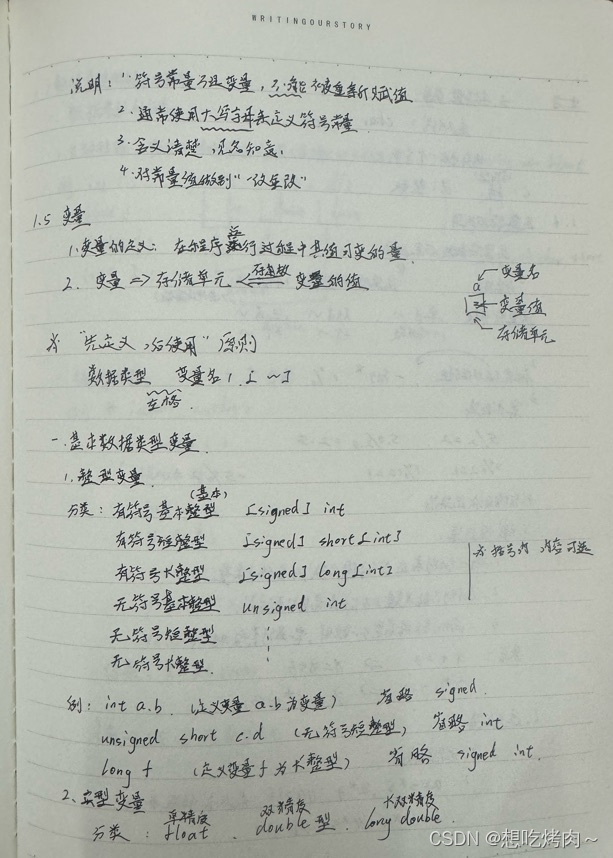 WRITINGOURSTORY
说明：1. 符号常量不是变量，不能被重新赋值
2. 通常使用大写字母来定义符号常量
3. 含义清楚，见名知意；
4. 对常量值做到"一改全改"
1.5 变量
1. 变量的定义：在程序运行过程中其值可变的量
2. 变量 => 存储单元 <= 变量的值
变量名
a
变量值
存储单元
"先定义，后使用"原则
数据类型 变量名1, [ ～]
空格
一. 基本数据类型变量
1. 整型变量
(基本)
分类：有符号基本整型 [signed] int
有符号短整型 [signed] short [int]
有符号长整型 [signed] long [int]
括号内 内容可选
无符号基本整型 unsigned int
无符号短整型
无符号长整型
例：int a.b. (定义变量 a.b 为变量) 省略 signed.
unsigned short c.d (无符号短整型) 省略 int
long f (定义变量 f 为长整型) 省略 signed int.
2. 实型变量
单精度 双精度 长双精度
分类：float . double 型. long double.
CSDN @想吃烤肉～